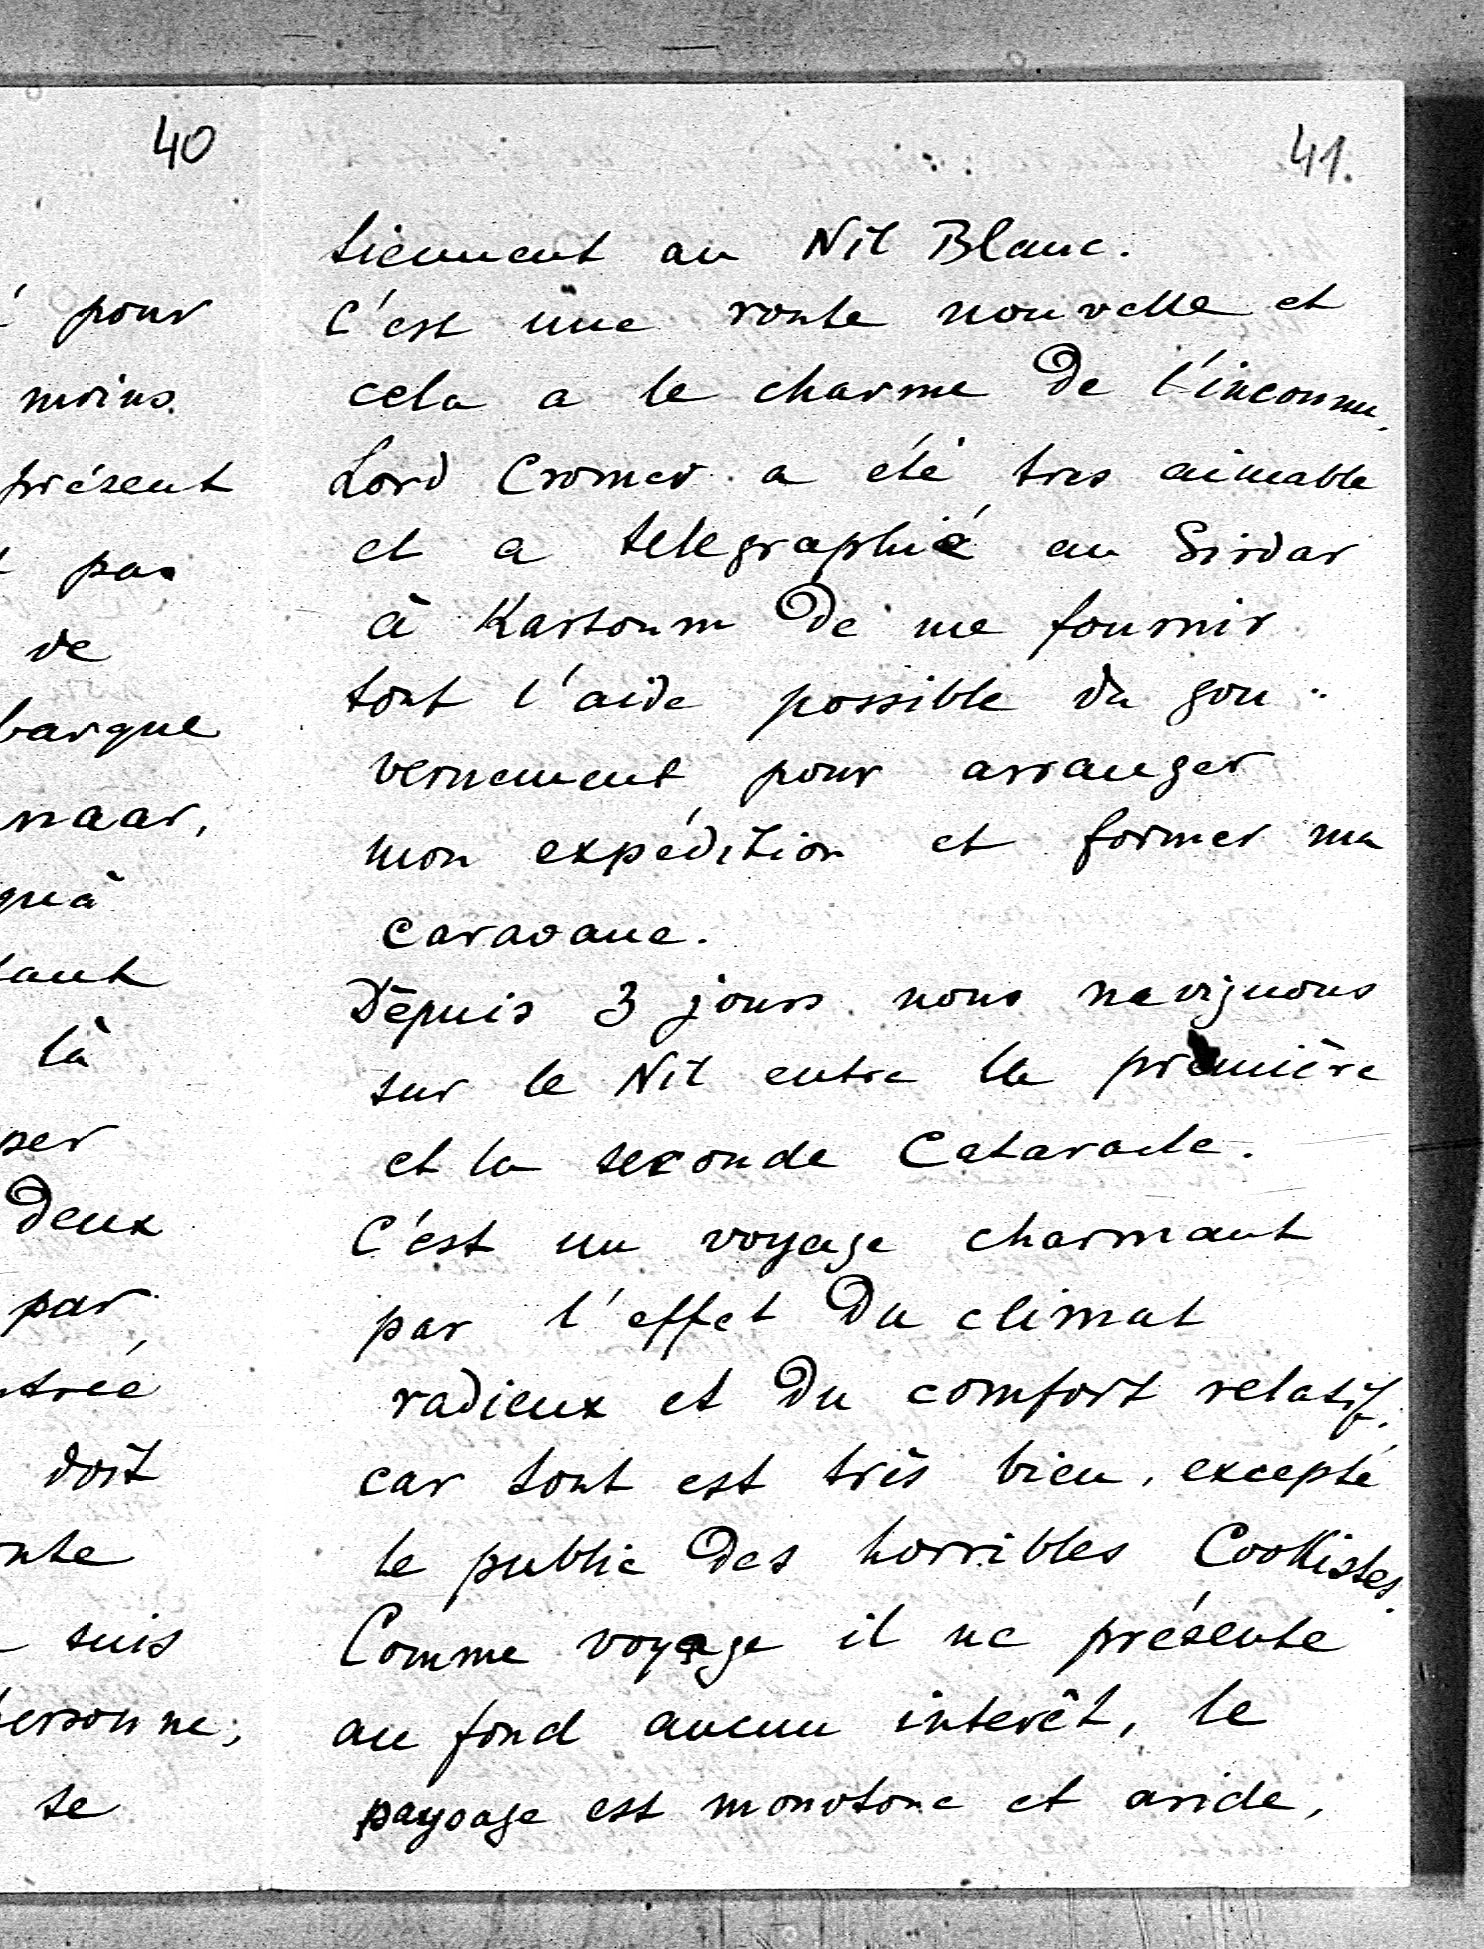 40
pour
moins.
présent
pas
de
barque
naar,
qu'à
tant
là
ser
Deux
par
ntrée
doit
nte
suis
personne;
se
41.
tiennent au Nil Blanc.
C'est une route nouvelle et
cela a le charme De l'inconnu.
Lord Cromer a été tres aimable
et a telegraphié au Sirdar
à Kartoum De me fournir
tout l'aide possible du gou-
vernement pour arranger
mon expédition et former ma
caravane.
Depuis 3 jours nous navignons
sur le Nil entre la première
et la seconde Cataracte.
C'est un voyage charmant
par l'effet Du climat
radieux et Du comfort relatif,
car tout est très bien, excepté
le public Des horribles Cookistes.
Comme voyage il ne présente
au fond aucun interêt, le
paysage est monotone et aride,